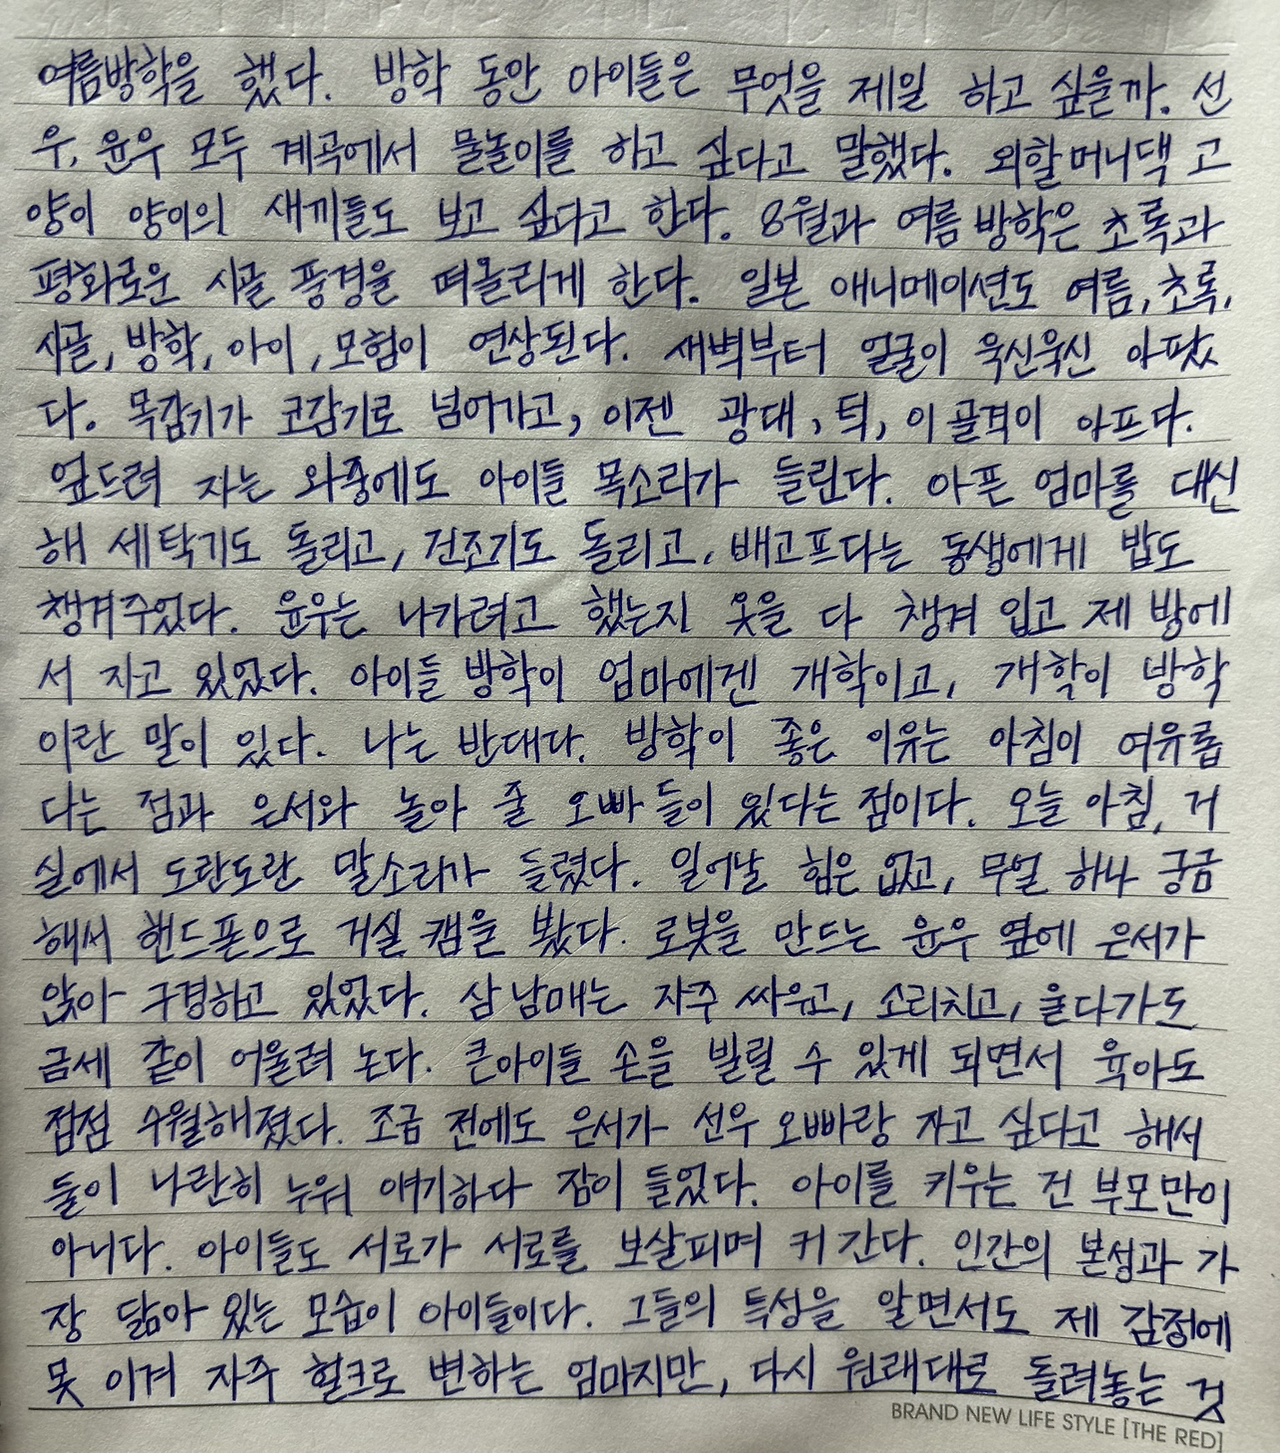 여름방학을 했다. 방학 동안 아이들은 무엇을 제일 하고 싶을까. 선
우, 윤우 모두 계곡에서 물놀이를 하고 싶다고 말했다. 외할머니댁 고
양이 양이의 새끼들도 보고 싶다고 한다. 8월과 여름 방학은 초록과
평화로운 시골 풍경을 떠올리게 한다. 일본 애니메이션도 여름, 초록,
시골, 방학, 아이, 모험이 연상된다. 새벽부터 얼굴이 욱신욱신 아팠
다. 목감기가 코감기로 넘어가고, 이젠 광대, 턱, 이 골격이 아프다.
엎드려 자는 와중에도 아이들 목소리가 들린다. 아픈 엄마를 대신
해 세탁기도 돌리고, 건조기도 돌리고, 배고프다는 동생에게 밥도
챙겨주었다. 윤우는 나가려고 했는지 옷을 다 챙겨 입고 제 방에
서 자고 있었다. 아이들 방학이 엄마에겐 개학이고, 개학이 방학
이란 말이 있다. 나는 반대다. 방학이 좋은 이유는 아침이 여유롭
다는 점과 은서와 놀아 줄 오빠들이 있다는 점이다. 오늘 아침, 거
실에서 도란도란 말소리가 들렸다. 일어날 힘은 없고, 무얼 하나 궁금
해서 핸드폰으로 거실 캠을 봤다. 로봇을 만드는 윤우 옆에 은서가
앉아 구경하고 있었다. 삼 남매는 자주 싸우고, 소리치고, 울다가도
금세 같이 어울려 논다. 큰아이들 손을 빌릴 수 있게 되면서 육아도
점점 수월해졌다. 조금 전에도 은서가 선우 오빠랑 자고 싶다고 해서
둘이 나란히 누워 얘기하다 잠이 들었다. 아이를 키우는 건 부모만이
아니다. 아이들도 서로가 서로를 보살피며 커 간다. 인간의 본성과 가
장 닮아 있는 모습이 아이들이다. 그들의 특성을 알면서도 제 감정에
못 이겨 자주 헐크로 변하는 엄마지만, 다시 원래대로 돌려놓는 것
BRAND NEW LIFE STYLE [THE RED]